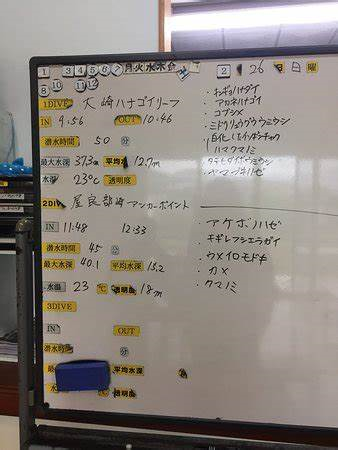 1 3 4 5 6 7 月火水木金 2 26 日 曜
8 9 11 12
10
1DIVE 大崎ハナゴイリーフ
IN 9:56 OUT 10:46
潜水時間 50 分
最大水深 37.3m 平均水深 12.7m
水温 23℃ 透明度
2DI 屋良部崎アンカーポイント
IN 11:48 12:33
潜水時間 45 分
最大水深 40.1 平均水深 15.2
水温 23 ℃ 透明度 18m
3DIVE
IN OUT
潜水時間 分
最 平均水深
水 ℃ 透明度
・アカネハナゴイ
・コブシメ
・ミドリリュウグウウミウシ
・ハマクマノミ
・ヤマブキハゼ
・アケボノハゼ
・キギレフシエラガイ
・ウメイロモドキ
・カメ
・クマノミ